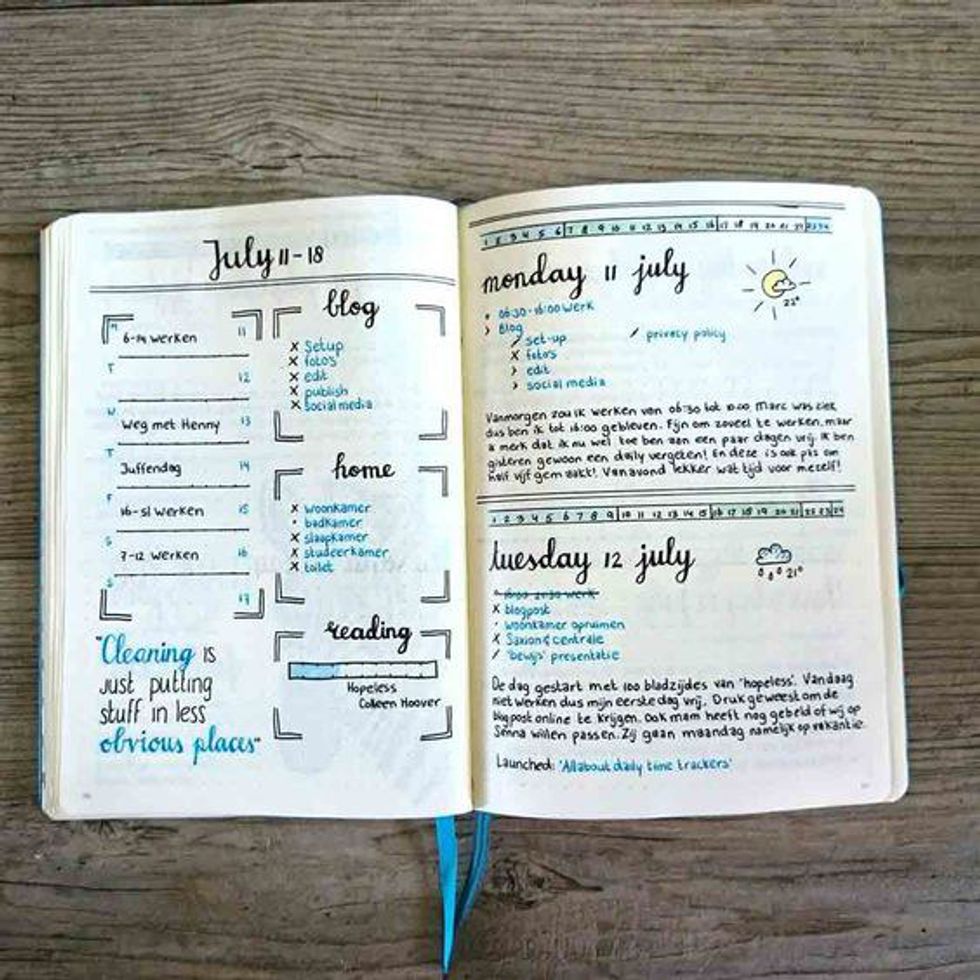 July 11-18
M
6-14 werken
11
T
12
W
Weg met Henny
13
T
Juffendag
14
F
15
16-sl werken
S
7-12 werken
16
S
17
"Cleaning is
just putting
stuff in less
obvious places"
blog
x Setup
x foto's
x edit
x publish
x social media
home
x woonkamer
• badkamer
x slaapkamer
x studeerkamer
x toilet
reading
Hopeless
Colleen Hoover
1 2 3 4 5 6 7 8 9 10 11 12 13 14 15 16 17 18 19 20 21 22 23 24
monday 11 july
22°
• 06:30-16:00 werk
> Blog
/ set-up
/ privacy policy
x foto's
> edit
> social media
Vanmorgen zou ik werken van 06:30 tot 10:00. Marc was ziek
dus ben ik tot 16:00 gebleven. Fijn om zoveel te werken, maar
ik merk dat ik nu wel toe ben aan een paar dagen vrij. Ik ben
gisteren gewoon een daily vergeten! En deze is ook pas om
half vijf gemaakt! Vanavond lekker wat tijd voor mezelf!
1 2 3 4 5 6 7 8 9 10 11 12 13 14 15 16 17 18 19 20 21 22 23 24
tuesday 12 july
21°
• 16:00-21:30 werk
x blogpost
• woonkamer opruimen
x Saxion & centrale
/ 'bewijs' presentatie
De dag gestart met 100 bladzijdes van 'hopeless'. Vandaag
niet werken dus mijn eerste dag vrij. Druk geweest om de
blogpost online te krijgen. Ook mam heeft nog gebeld of wij op
Senna willen passen. Zij gaan maandag namelijk op vakantie.
Launched: 'All about daily time trackers'